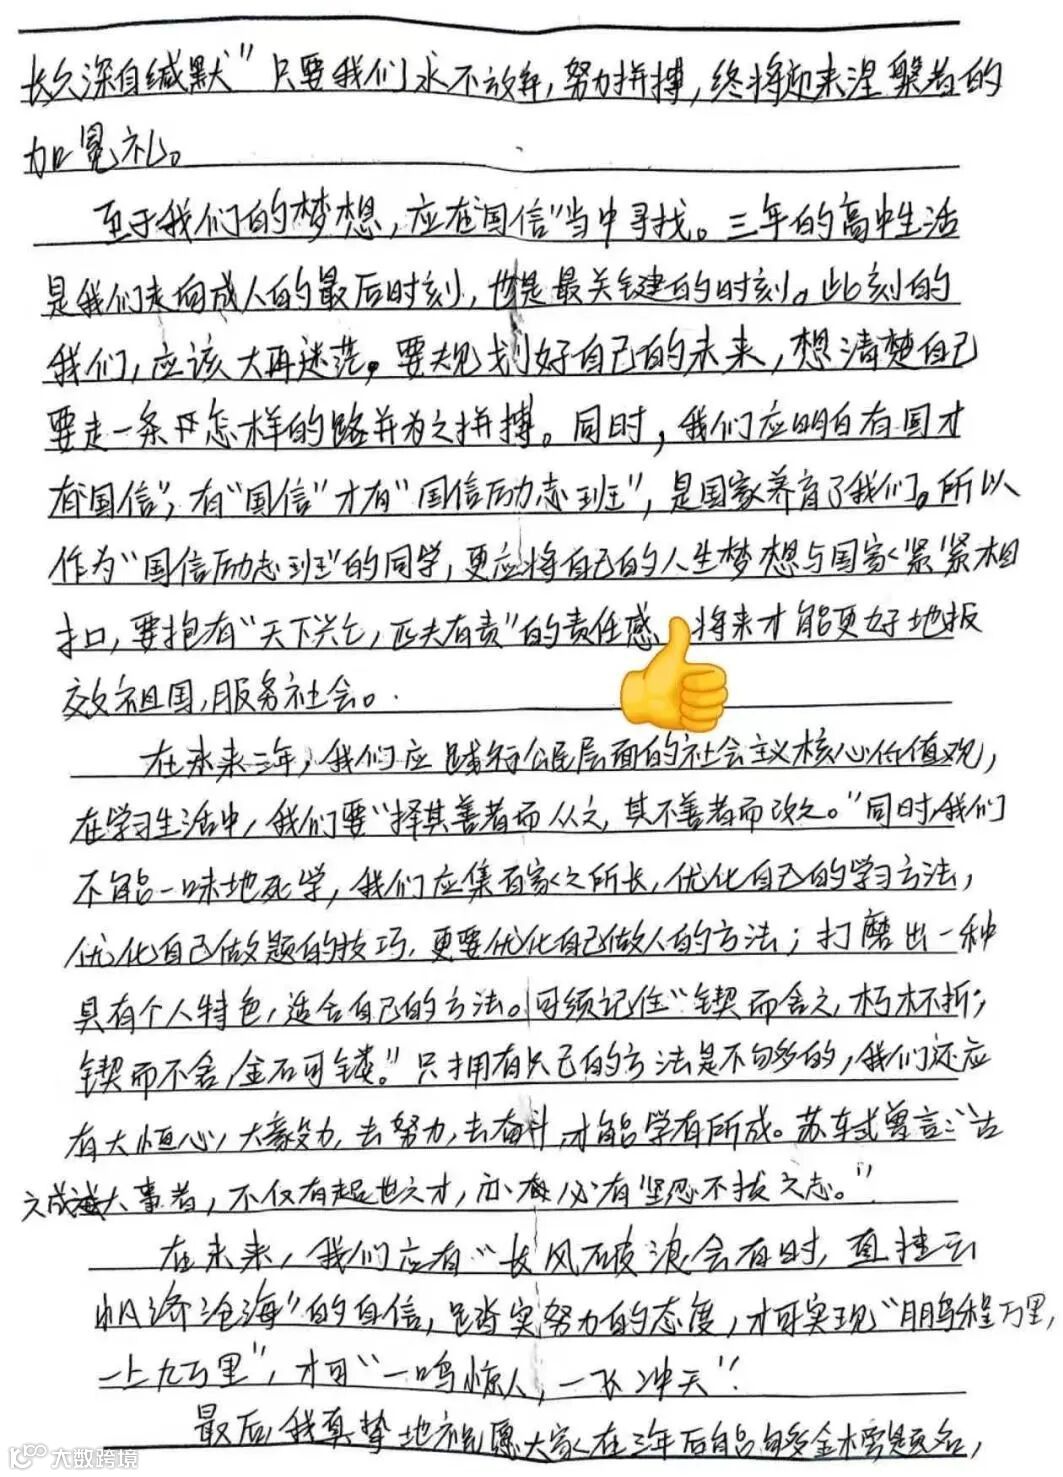 长久深自缄默”只要我们永不放弃,努力拼搏,终将迎来涅槃者的
加冕礼。
至于我们的梦想,应在“国信”当中寻找。三年的高中生活
是我们走向成人的最后时刻,也是最关键的时刻。此刻的
我们,应该大再迷茫。要规划好自己的未来,想清楚自己
要走一条怎样的路并为之拼搏。同时,我们应明白有国才
有“国信”,有“国信”才有“国信励志班”,是国家养育了我们。所以
作为“国信励志班”的同学,更应将自己的人生梦想与国家紧紧相
扣,要抱有“天下兴亡,匹夫有责”的责任感、将来才能更好地报
效祖国,服务社会。
在未来三年,我们应践行公民层面的社会主义核心价值观,
在学习生活中,我们要“择其善者而从之,其不善者而改之。”同时,我们
不能一味地死学,我们应集百家之所长,优化自己的学习方法,
优化自己做题的技巧,更要优化自己做人的方法;打磨出一种
具有个人特色,适合自己的方法。可须记住“锲而舍之,朽木不折;
锲而不舍,金石可镂。”只拥有自己的方法是不够的,我们还应
有大恒心,大毅力,去努力,去奋斗,才能学有所成。苏轼曾言:“古
之成大事者,不仅有超世之才,亦必有坚忍不拔之志。”
在未来,我们应有“长风破浪会有时,直挂云
帆济沧海”的自信,踏实努力的态度,才可实现“鹏程万里,
一上九万里”,才可“一鸣惊人,一飞冲天”.
最后,我真挚地祝愿大家在三年后能够金榜题名,
大数跨境